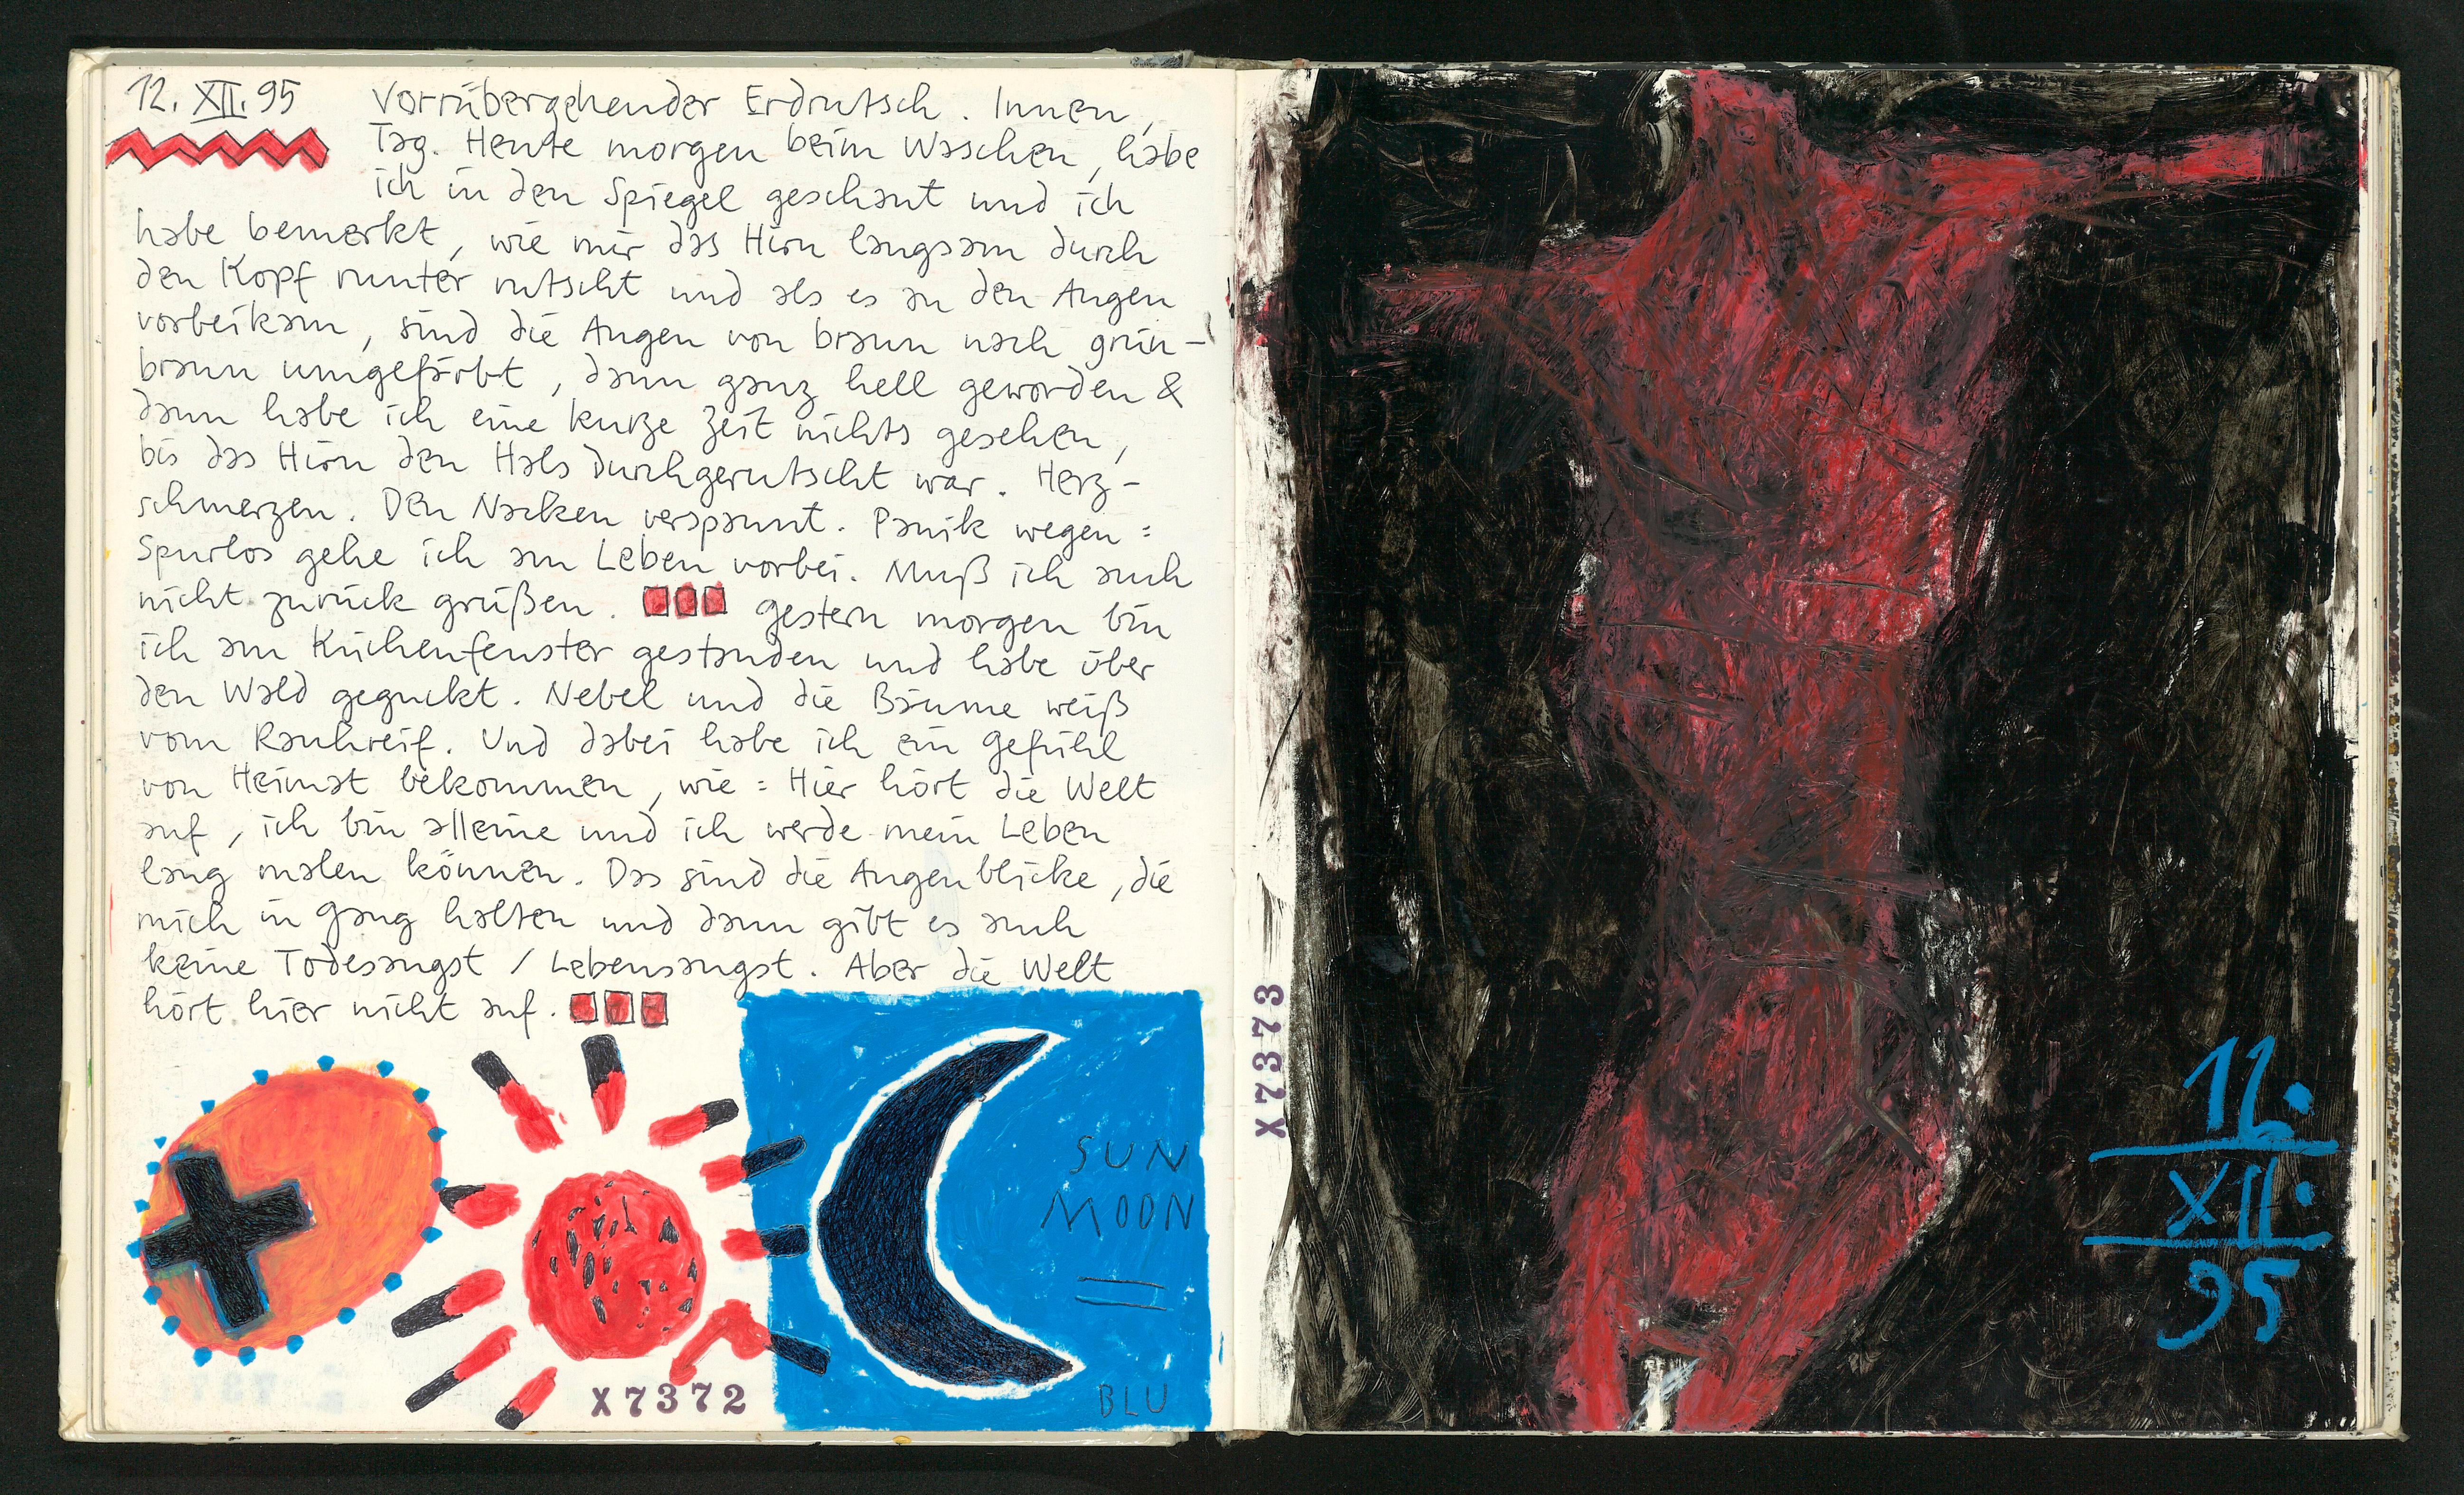 12. XII. 95
Vorrübergehender Erdrutsch. Innen,
Tag. Heute morgen beim Waschen, habe
ich in den Spiegel geschaut und ich
habe bemerkt, wie mir das Hirn langsam durch
den Kopf runter rutscht und als es an den Augen
vorbeikam, sind die Augen von braun nach grün-
braun umgefärbt, dann ganz hell geworden &
dann habe ich eine kurze Zeit nichts gesehen,
bis das Hirn den Hals durchgerutscht war. Herz-
schmerzen. Den Nacken verspannt. Panik wegen:
Spurlos gehe ich am Leben vorbei. Muß ich auch
nicht zurück grüßen. gestern morgen bin
ich am Küchenfenster gestanden und habe über
den Wald geguckt. Nebel und die Bäume weiß
vom Rauhreif. Und dabei habe ich ein Gefühl
von Heimat bekommen, wie: Hier hört die Welt
auf, ich bin alleine und ich werde mein Leben
lang malen können. Das sind die Augenblicke, die
mich in Gang halten und dann gibt es auch
keine Todesangst / Lebensangst. Aber die Welt
hört hier nicht auf.
SUN
MOON
=
BLU
X7372
X7373
12.
XII.
95